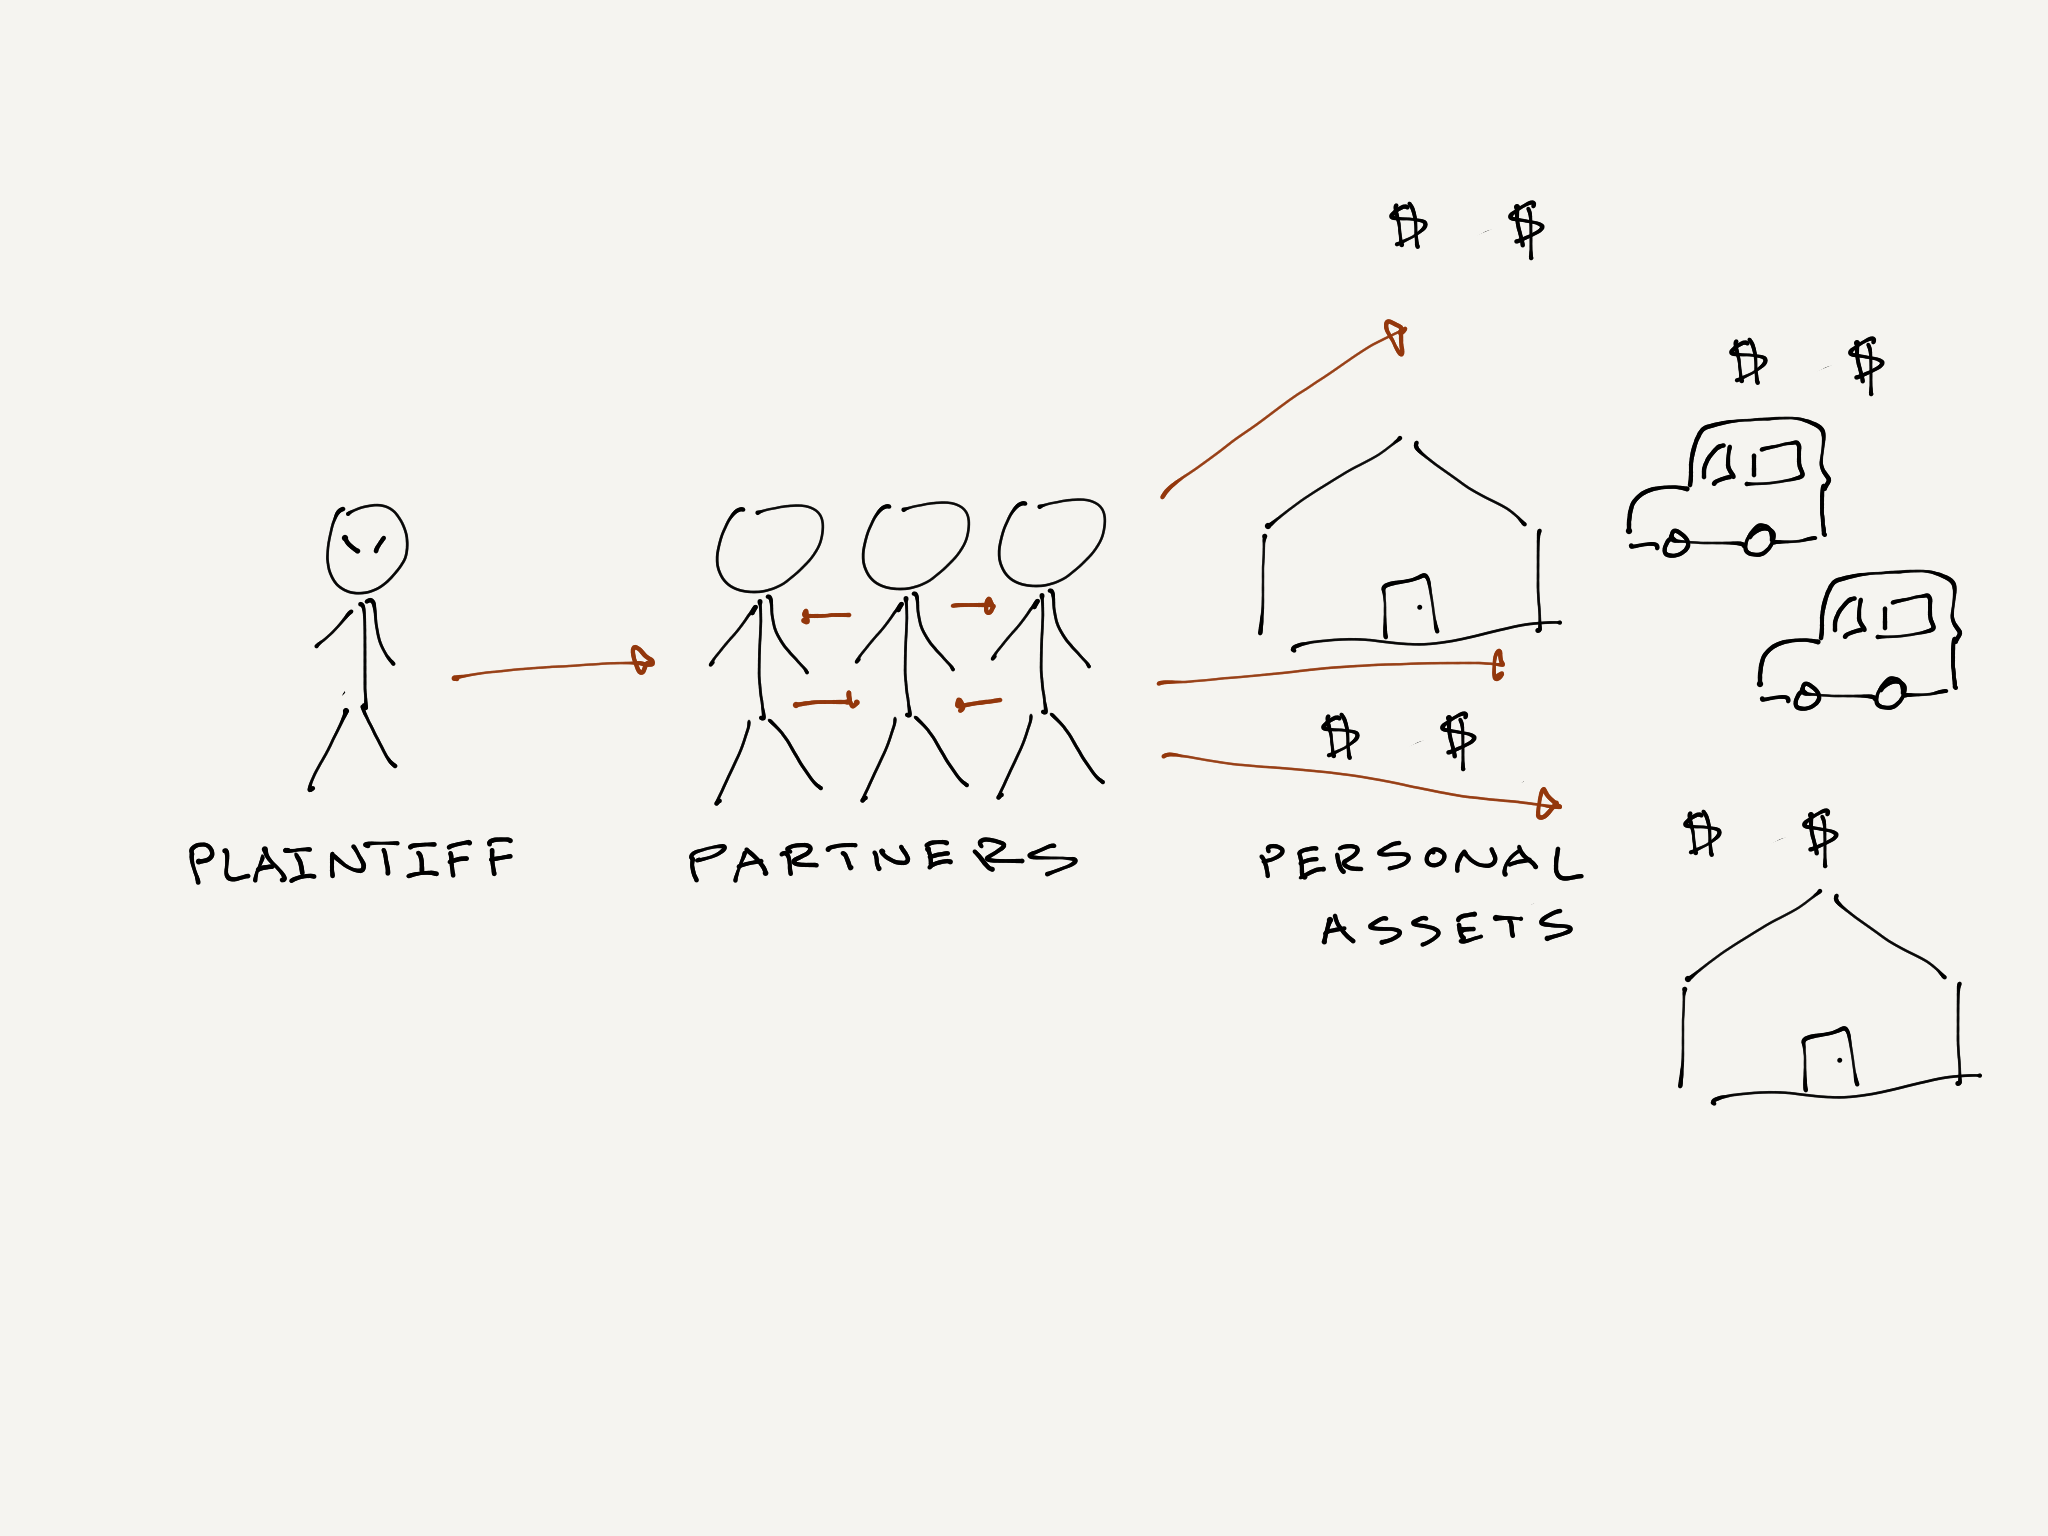 $ $
$ $
$ $
$ $
PLAINTIFF
PARTNERS
PERSONAL
ASSETS